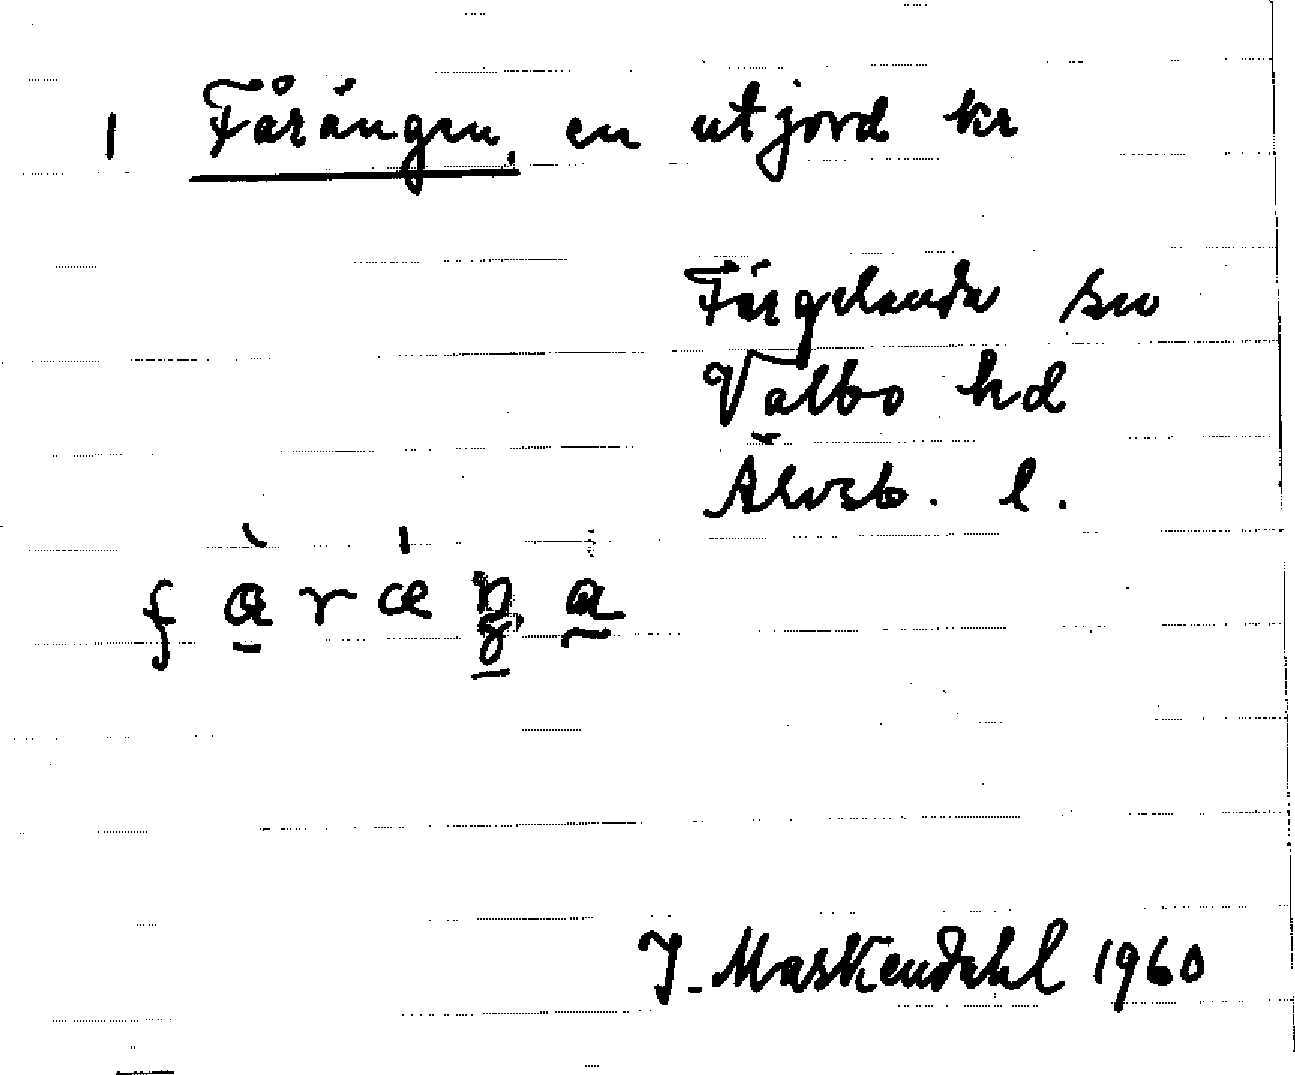 1 Fårängen, en utjord kr
Färgelanda sn
Valbo hd
Älvsb. l.
J. Maskendahl 1960